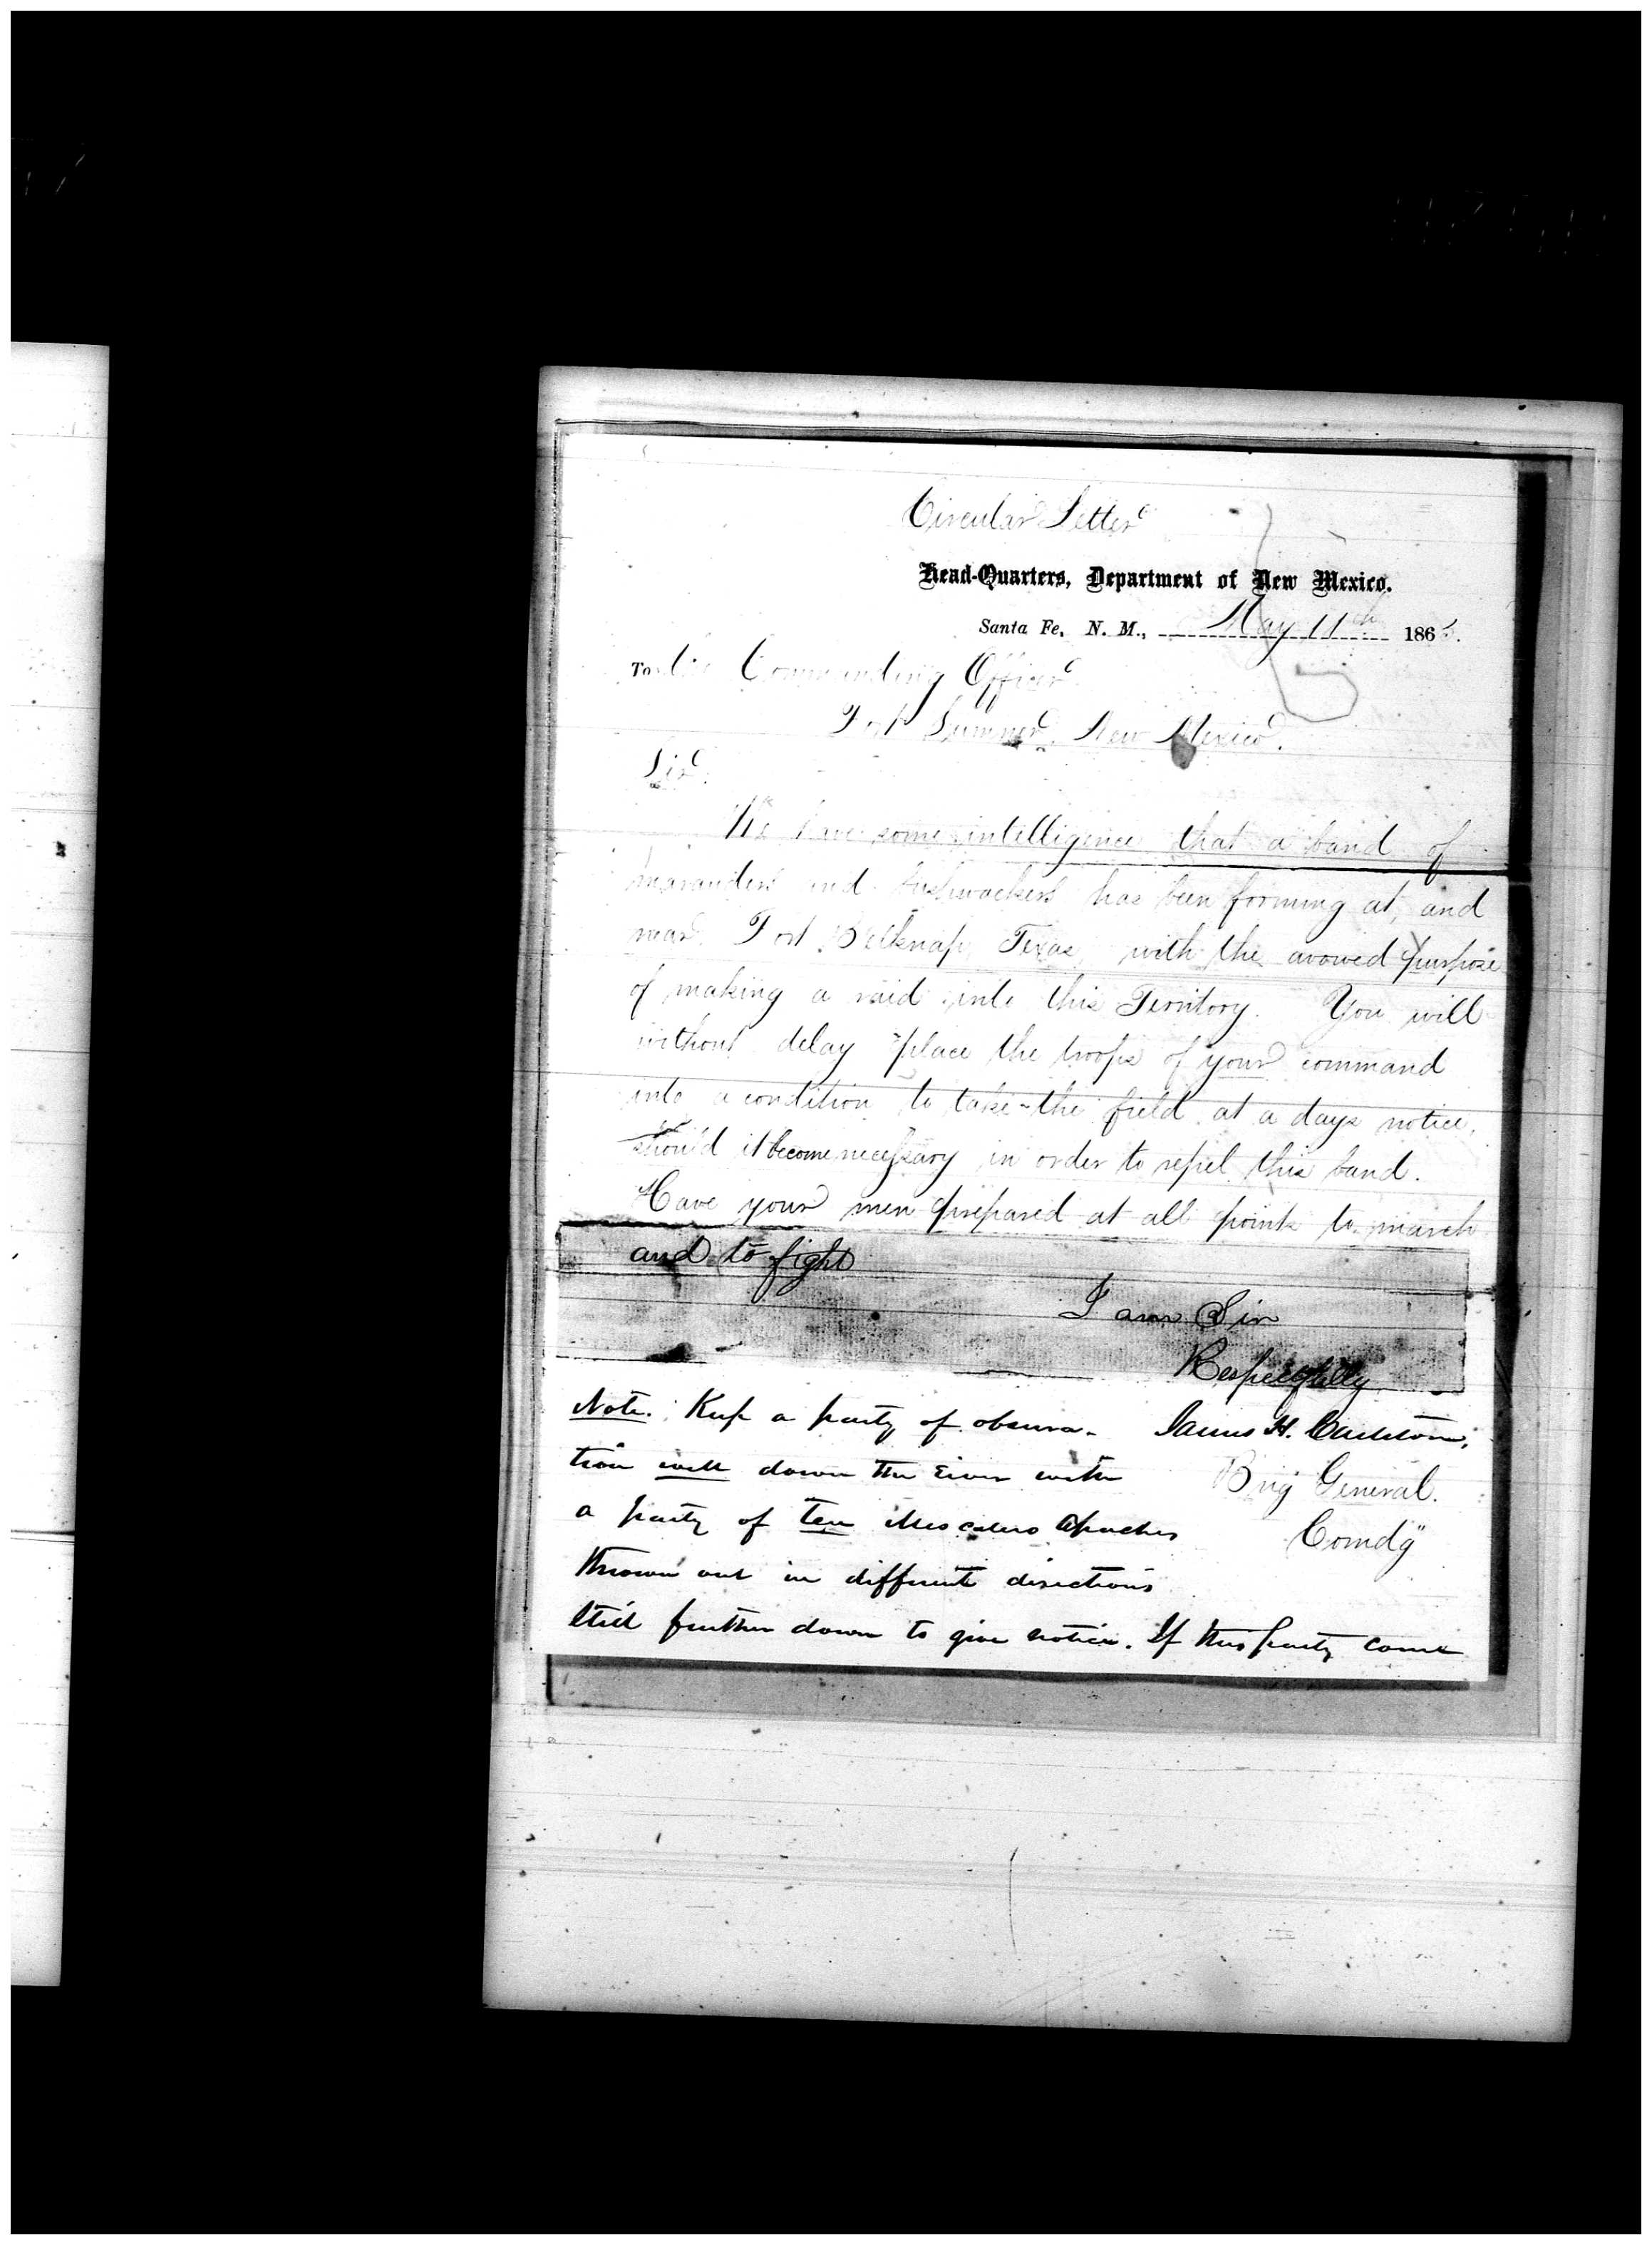 Circular Letter
Head-Quarters, Department of New Mexico.
Santa Fe, N. M., May 11th 186
To the Commanding Officer
Fort Sumner, New Mexico.
Sir.
We have some intelligence that a band of
marauders and bushwackers has been forming at, and
near Fort Belknap, Texas, with the avowed purpose
of making a raid into this Territory. You will
without delay place the troops of your command
into a condition to take the field at a days notice,
should it become necessary in order to repel this band.
Have your men prepared at all points to march
and to fight
I am Sir
Respectfully
James H. Carleton,
Brig General.
Comdg
Note. Keep a party of observa-
tion well down the River with
a party of ten Mescalero Apaches
thrown out in different directions
still further down to give notice. If this party come